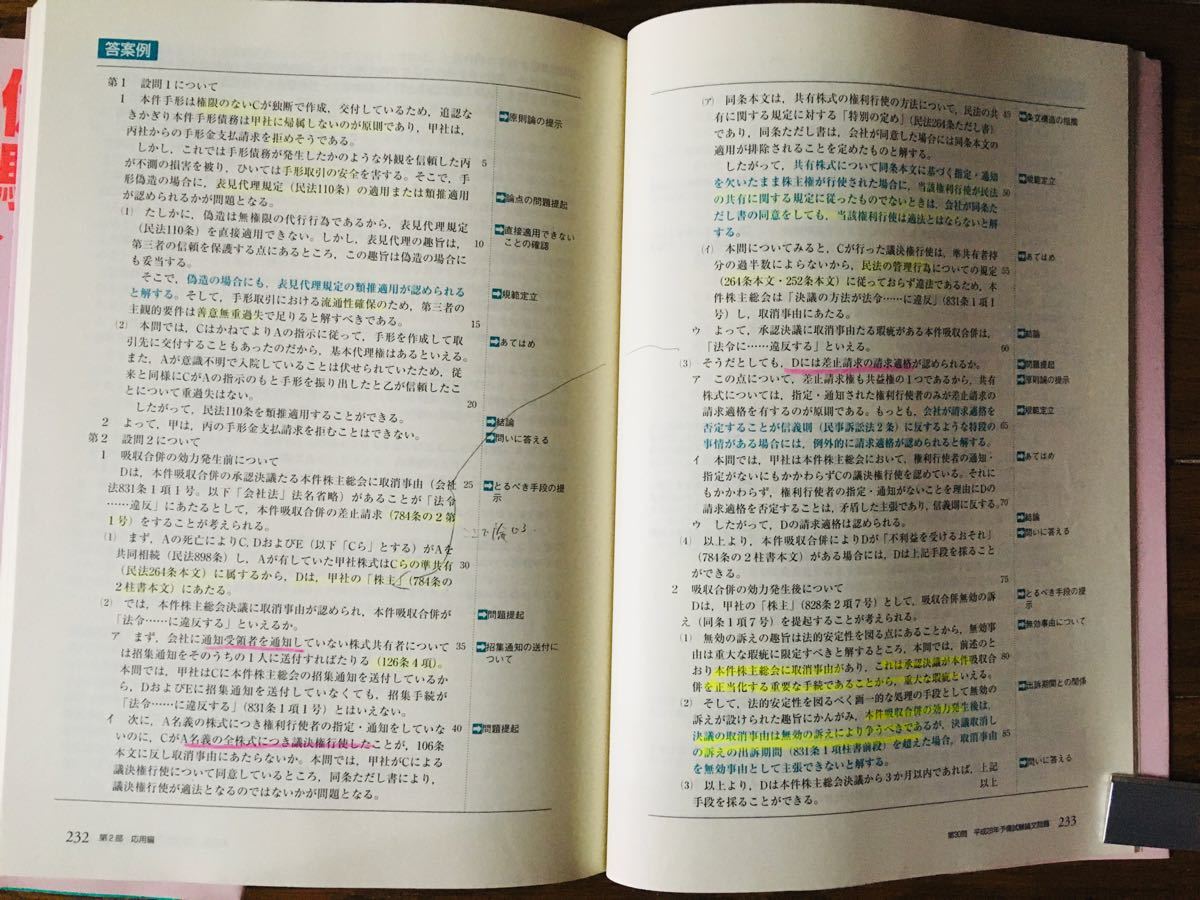 答案例
第1　設問1について
1　本件手形は権限のないCが独断で作成，交付しているため，追認な
きかぎり本件手形債務は甲社に帰属しないのが原則であり，甲社は，
丙社からの手形金支払請求を拒めそうである。
しかし，これでは手形債務が発生したかのような外観を信頼した丙
が不測の損害を被り，ひいては手形取引の安全を害する。そこで，手
形偽造の場合に，表見代理規定（民法110条）の適用または類推適用
が認められるかが問題となる。
(1)　たしかに，偽造は無権限の代行行為であるから，表見代理規定
（民法110条）を直接適用できない。しかし，表見代理の趣旨は，
第三者の信頼を保護する点にあるところ，この趣旨は偽造の場合に
も妥当する。
そこで，偽造の場合にも，表見代理規定の類推適用が認められる
と解する。そして，手形取引における流通性確保のため，第三者の
主観的要件は善意無重過失で足りると解すべきである。
(2)　本問では，CはかねてよりAの指示に従って，手形を作成して取
引先に交付することもあったのだから，基本代理権はあるといえる。
また，Aが意識不明で入院していることは伏せられていたため，従
来と同様にCがAの指示のもと手形を振り出したと乙が信頼したこ
とについて重過失はない。
したがって，民法110条を類推適用することができる。
2　よって，甲は，丙の手形金支払請求を拒むことはできない。
第2　設問2について
1　吸収合併の効力発生前について
Dは，本件吸収合併の承認決議たる本件株主総会に取消事由（会社
法831条1項1号。以下「会社法」法名省略）があることが「法令
……違反」にあたるとして，本件吸収合併の差止請求（784条の2第
1号）をすることが考えられる。
(1)　まず，Aの死亡によりC，DおよびE（以下「Cら」とする）がAを
共同相続（民法898条）し，Aが有していた甲社株式はCらの準共有
（民法264条本文）に属するから，Dは，甲社の「株主」（784条の
2柱書本文）にあたる。
(2)　では，本件株主総会決議に取消事由が認められ，本件吸収合併が
「法令……に違反する」といえるか。
ア　まず，会社に通知受領者を通知していない株式共有者について
は招集通知をそのうちの1人に送付すればたりる（126条4項）。
本問では，甲社はCに本件株主総会の招集通知を送付しているか
ら，DおよびEに招集通知を送付していなくても，招集手続が
「法令……に違反」（831条1項1号）とはいえない。
イ　次に，A名義の株式につき権利行使者の指定・通知をしていな
いのに，CがA名義の全株式につき議決権行使したことが，106条
本文に反し取消事由にあたらないか。本問では，甲社がCによる
議決権行使について同意しているところ，同条ただし書により，
議決権行使が適法となるのではないかが問題となる。
5
10
15
20
25
30
35
40
➡原則論の提示
➡論点の問題提起
➡直接適用できない
ことの確認
➡規範定立
➡あてはめ
➡結論
➡問いに答える
➡とるべき手段の提
示
➡問題提起
➡招集通知の送付に
ついて
➡問題提起
232　第2部　応用編
(ア)　同条本文は，共有株式の権利行使の方法について，民法の共
有に関する規定に対する「特別の定め」（民法264条ただし書）
であり，同条ただし書は，会社が同意した場合には同条本文の
適用が排除されることを定めたものと解する。
したがって，共有株式について同条本文に基づく指定・通知
を欠いたまま株主権が行使された場合に，当該権利行使が民法
の共有に関する規定に従ったものでないときは，会社が同条た
だし書の同意をしても，当該権利行使は適法とはならないと解
する。
(イ)　本問についてみると，Cが行った議決権行使は，準共有者持
分の過半数によらないから，民法の管理行為についての規定
（264条本文・252条本文）に従っておらず違法であるため，本
件株主総会は「決議の方法が法令……に違反」（831条1項1
号）し，取消事由にあたる。
ウ　よって，承認決議に取消事由たる瑕疵がある本件吸収合併は，
「法令に……違反する」といえる。
(3)　そうだとしても，Dには差止請求の請求適格が認められるか。
ア　この点について，差止請求権も共益権の1つであるから，共有
株式については，指定・通知された権利行使者のみが差止請求の
請求適格を有するのが原則である。もっとも，会社が請求適格を
否定することが信義則（民事訴訟法2条）に反するような特段の
事情がある場合には，例外的に請求適格が認められると解する。
イ　本問では，甲社は本件株主総会において，権利行使者の通知・
指定がないにもかかわらずCの議決権行使を認めている。それに
もかかわらず，権利行使者の指定・通知がないことを理由にDの
請求適格を否定することは，矛盾した主張であり，信義則に反する。
ウ　したがって，Dの請求適格は認められる。
(4)　以上より，本件吸収合併によりDが「不利益を受けるおそれ」
（784条の2柱書本文）がある場合には，Dは上記手段を採ること
ができる。
2　吸収合併の効力発生後について
Dは，甲社の「株主」（828条2項7号）として，吸収合併無効の訴
え（同条1項7号）を提起することが考えられる。
(1)　無効の訴えの趣旨は法的安定性を図る点にあることから，無効事
由は重大な瑕疵に限定すべきと解するところ，本問では，前述のと
おり本件株主総会に取消事由があり，これは承認決議が本件吸収合
併を正当化する重要な手続であることから，重大な瑕疵といえる。
(2)　そして，法的安定性を図るべく画一的な処理の手段として無効の
訴えが設けられた趣旨にかんがみ，本件吸収合併の効力発生後は，
決議の取消事由は無効の訴えにより争うべきであるが，決議取消し
の訴えの出訴期間（831条1項柱書前段）を超えた場合，取消事由
を無効事由として主張できないと解する。
(3)　以上より，Dは本件株主総会決議から3か月以内であれば，上記
手段を採ることができる。
以上
45
50
55
60
65
70
75
80
85
➡条文構造の指摘
➡規範定立
➡あてはめ
➡結論
➡問題提起
➡原則論の提示
➡規範定立
➡あてはめ
➡結論
➡問いに答える
➡とるべき手段の提
示
➡無効事由について
➡出訴期間との関係
➡問いに答える
第30問　平成28年予備試験論文問題　233